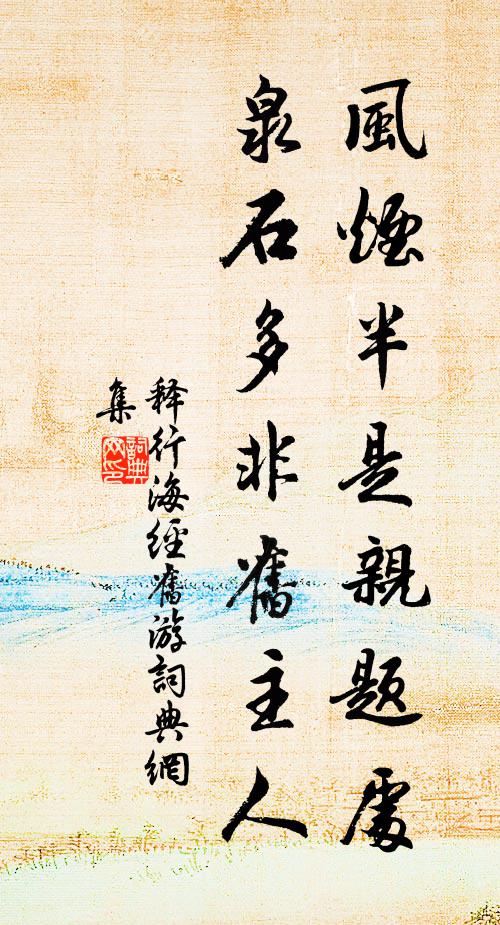 風煙半是親題處
泉石多非舊主人
释行海經舊游詞典網
集
詞典
网印